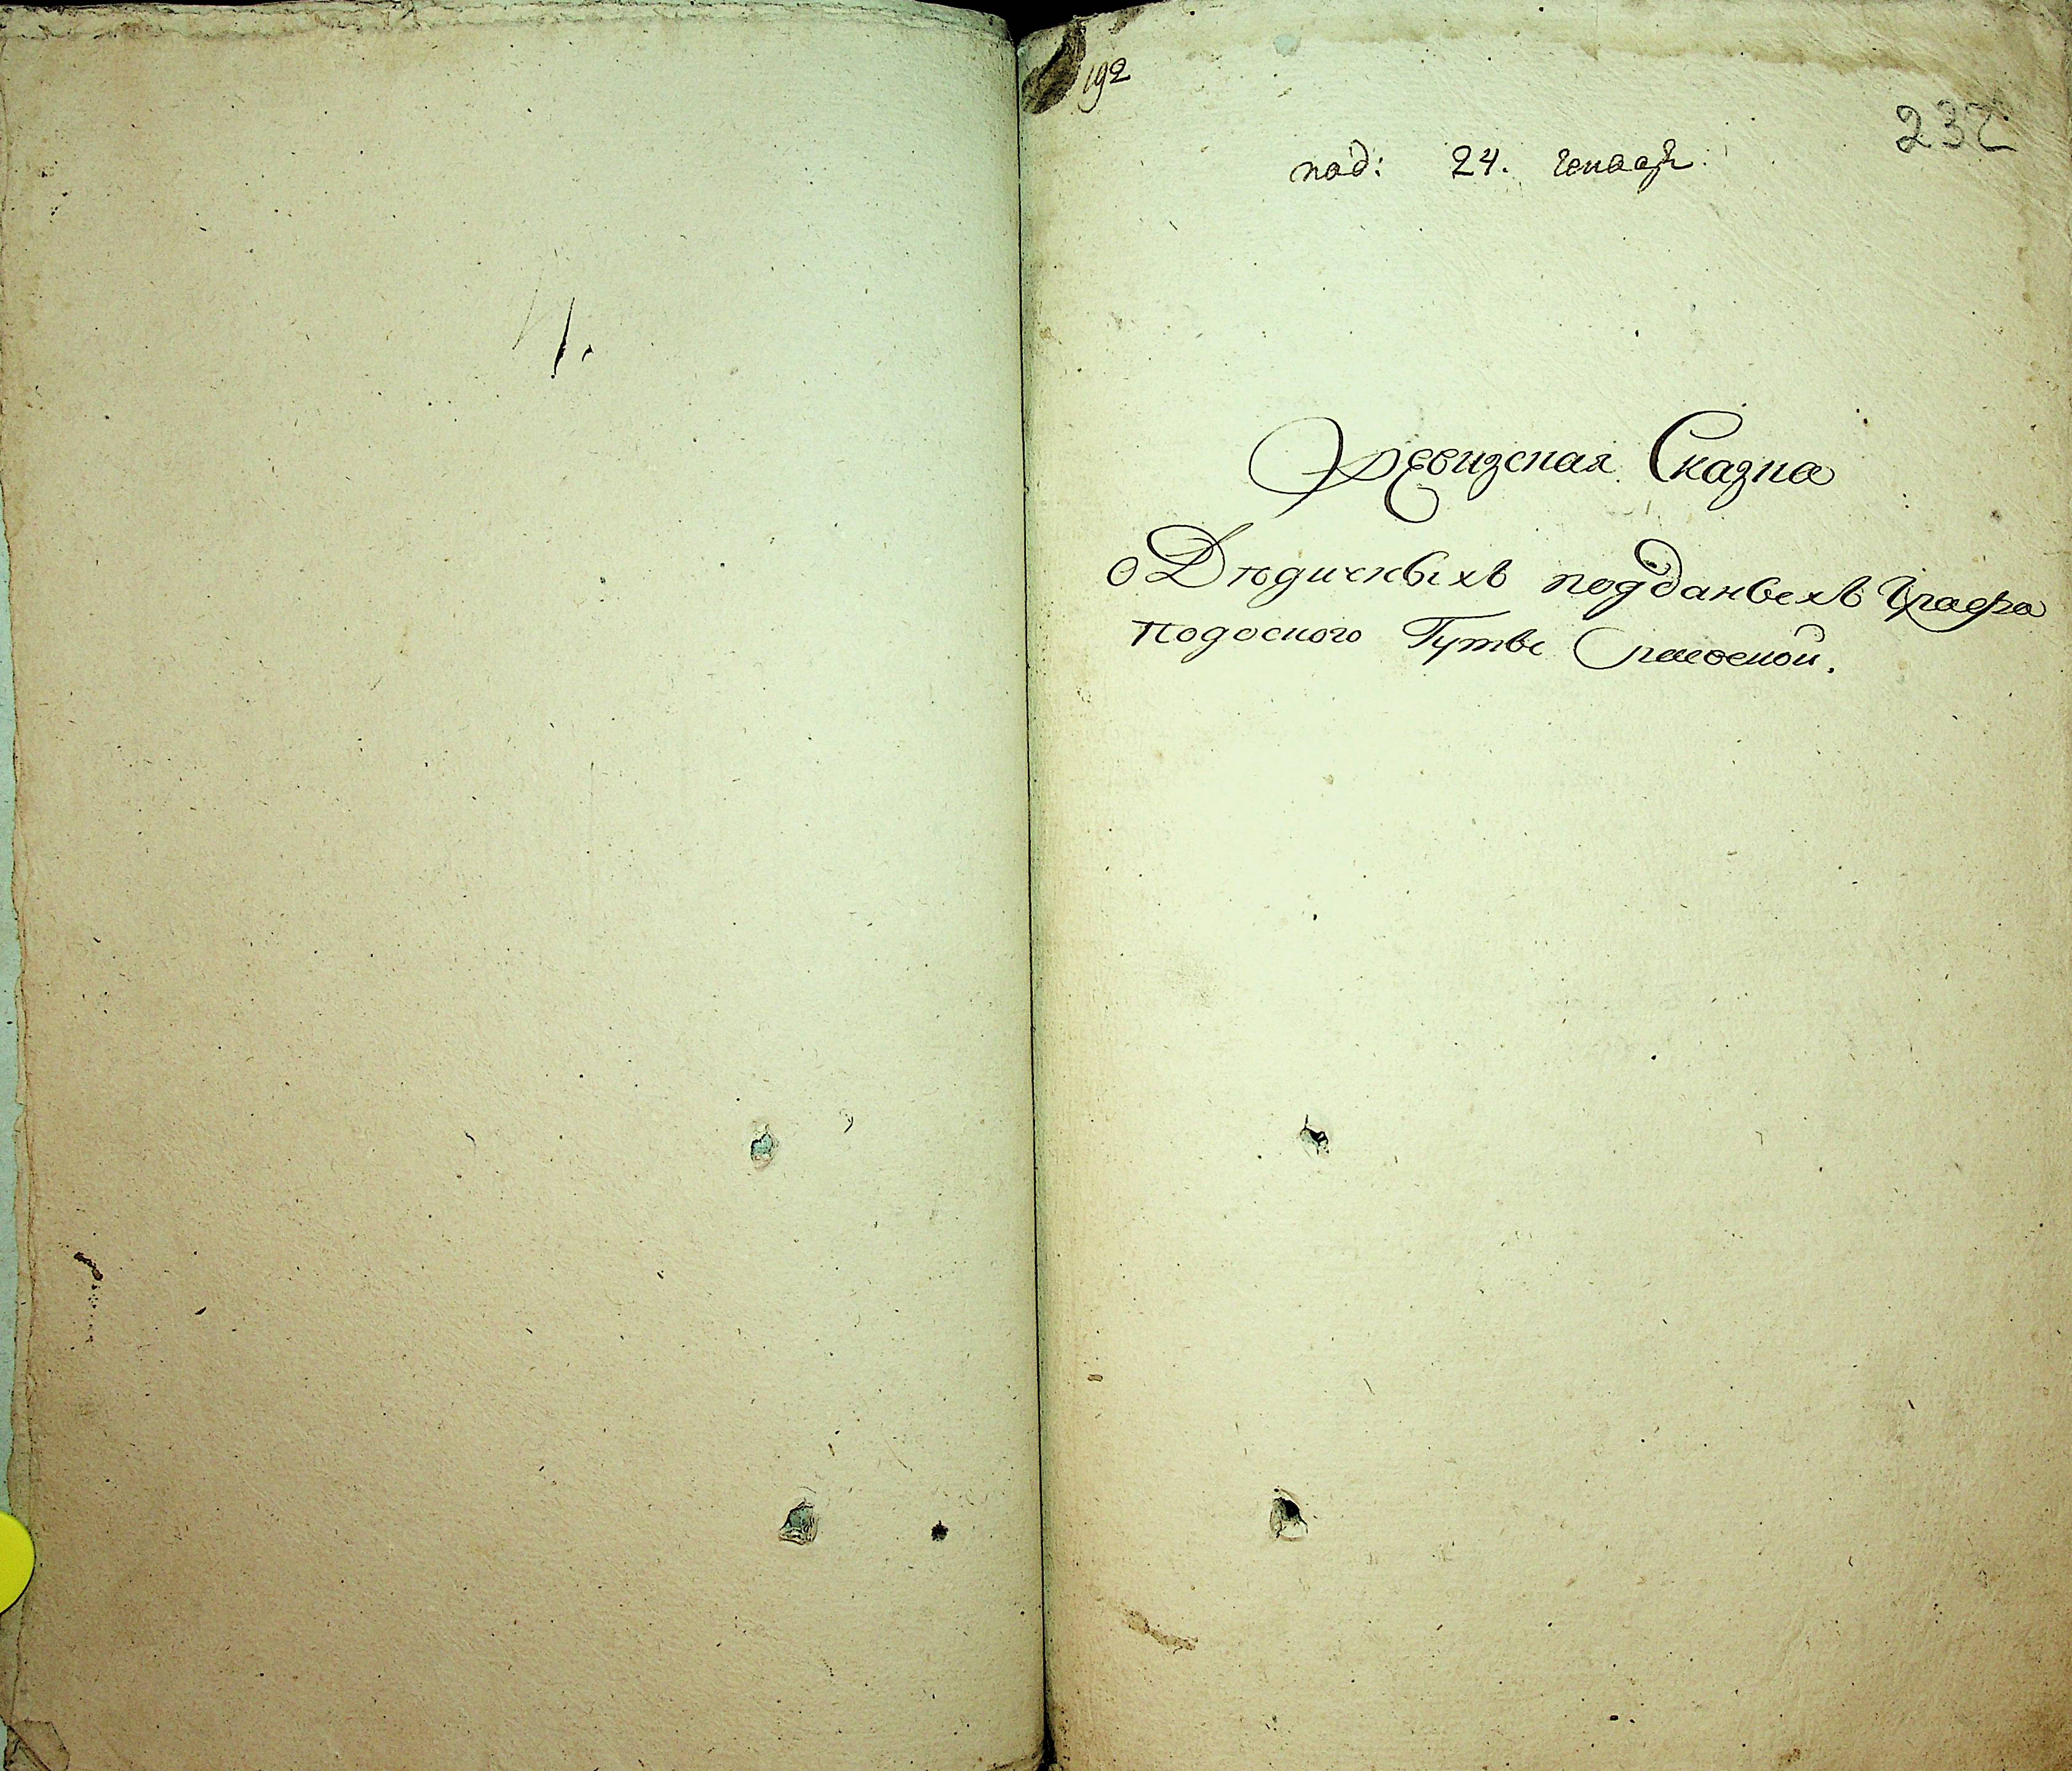 192
232
под: 24. генваря
Ревизская Сказка
О Дѣдичныхъ подданыхъ Графа
Подоского Гуты